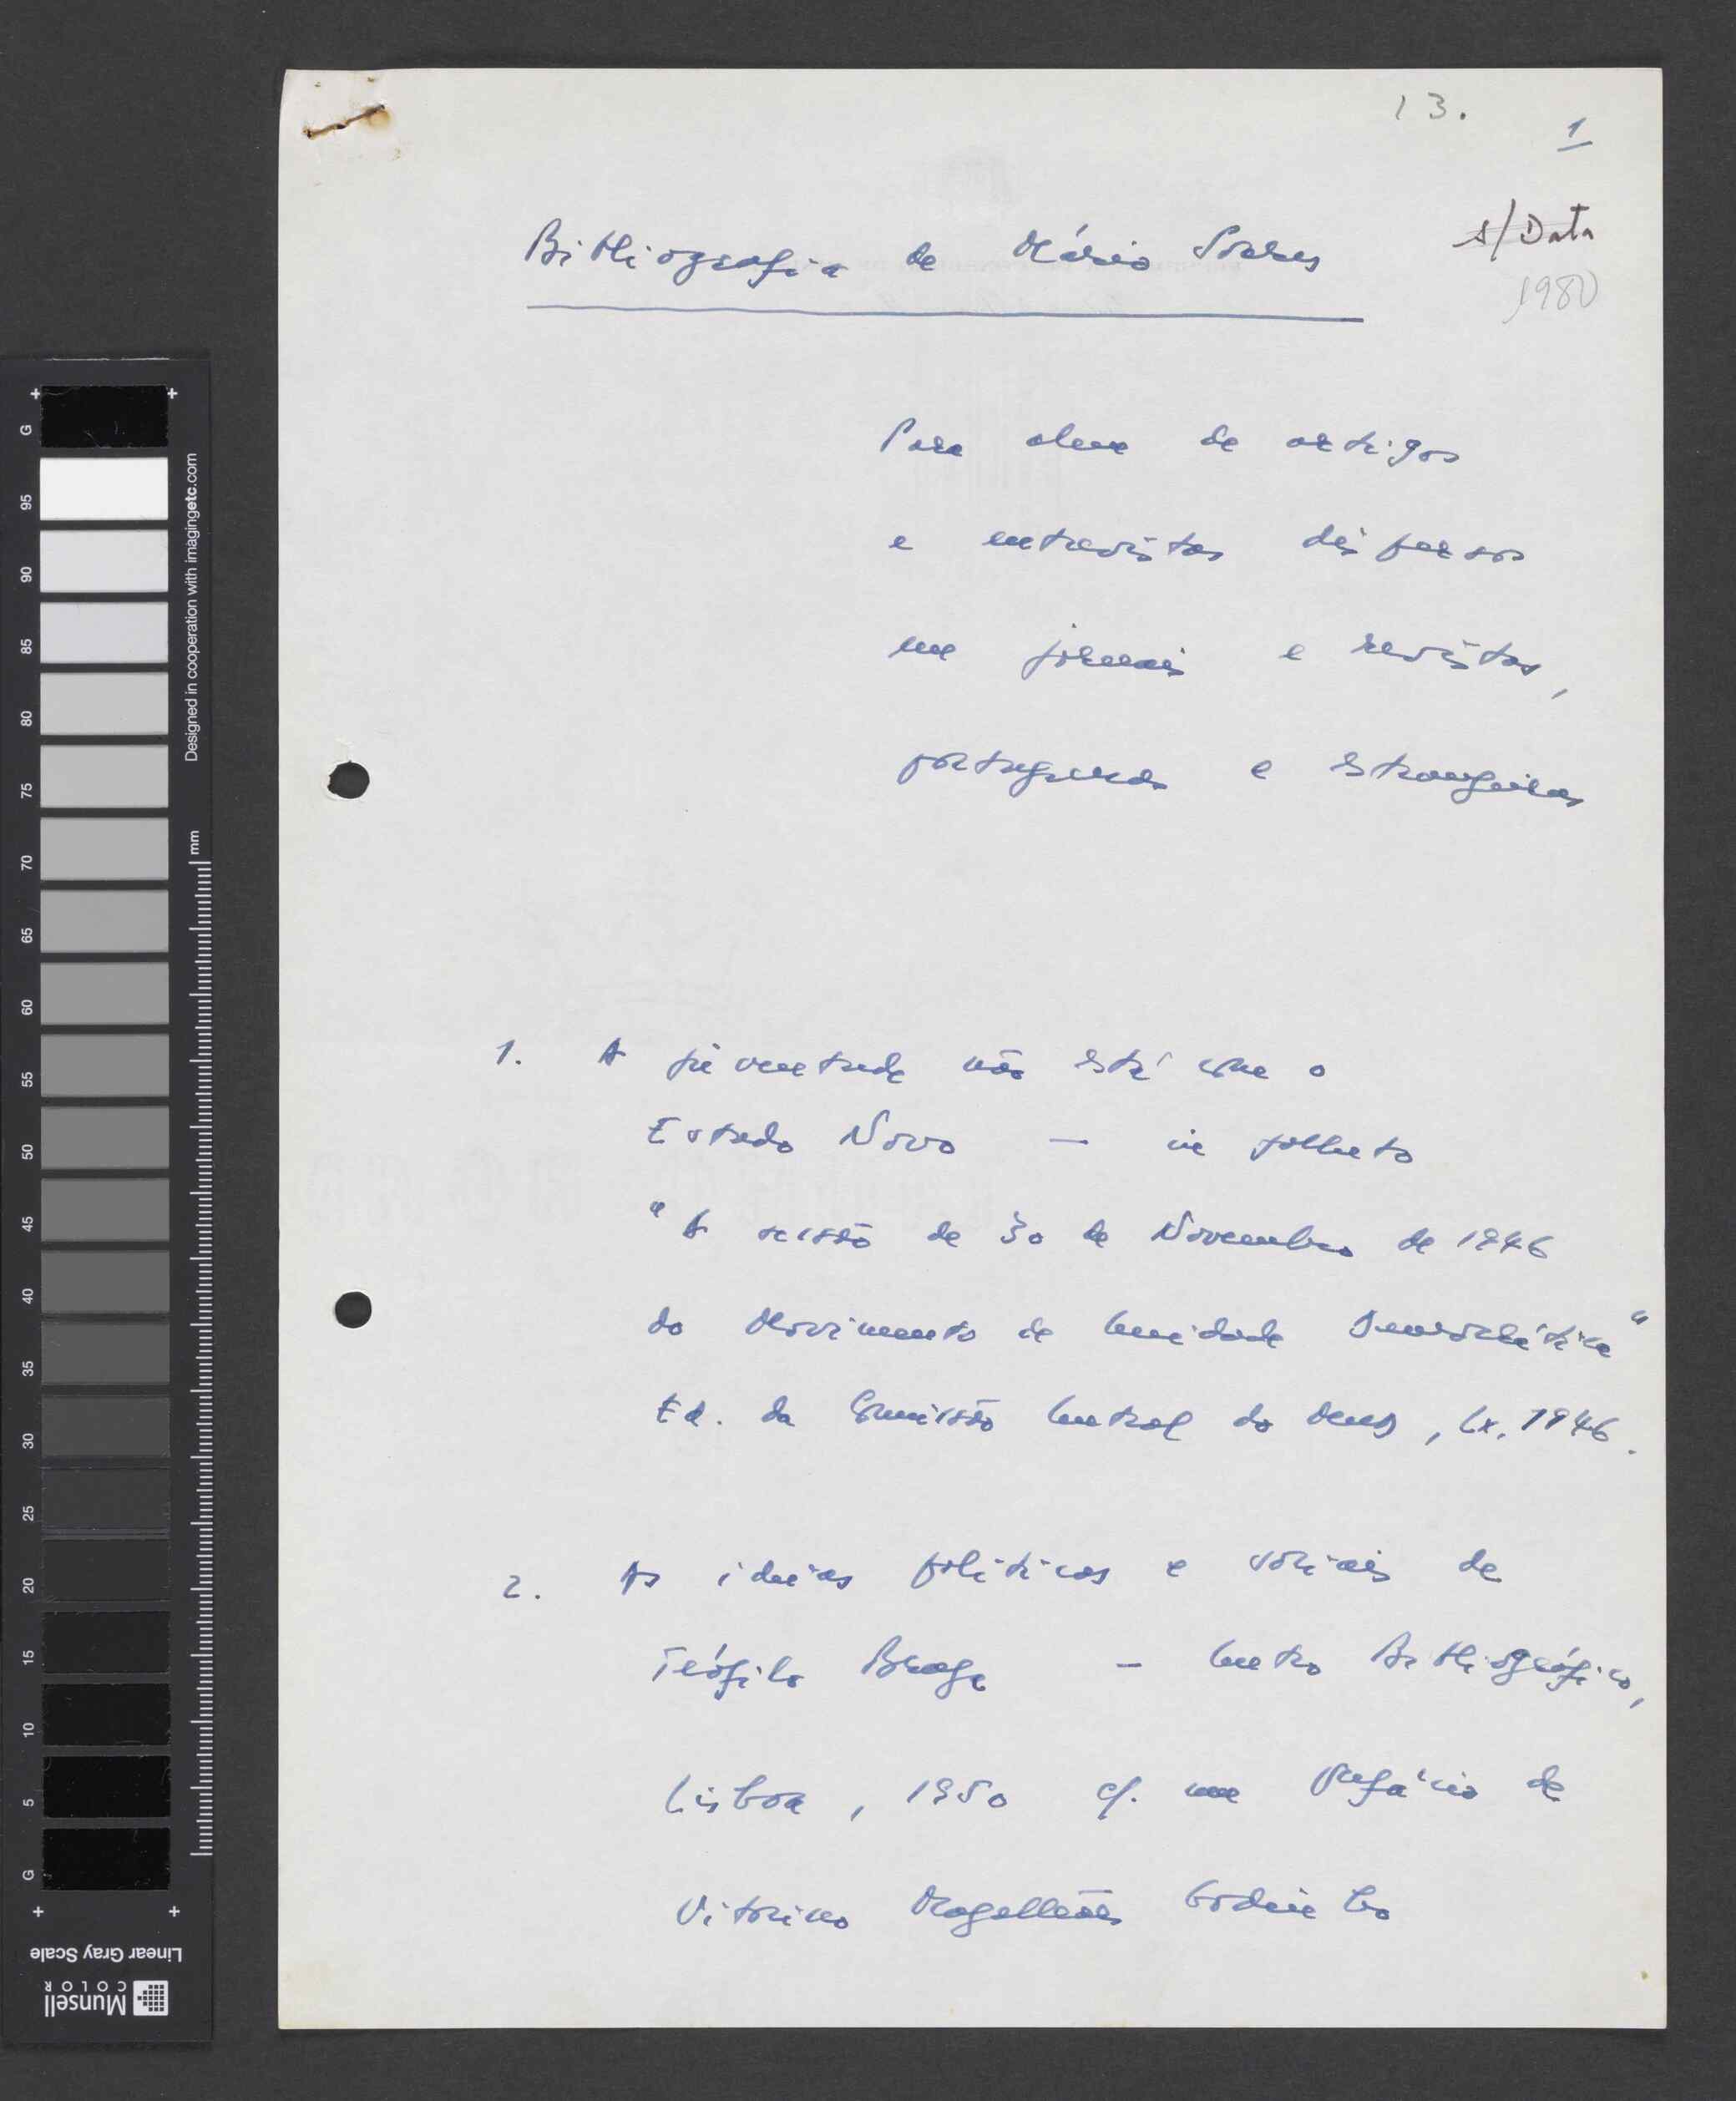 13.
1
s/Data
1980
Bibliografia de Mário Soares
Para alem de artigos
e entrevistas dispersos
em jornais e revistas,
portuguesas e estrangeiras
1. A juventude não está com o
Estado Novo – in folheto
"A sessão de 30 de Novembro de 1946
do Movimento de Unidade Democrática"
Ed. da Comissão Central do MUD, Lx. 1946.
2. As ideias políticas e sociais de
Teófilo Braga – Centro Bibliográfico,
Lisboa, 1950 c/. um prefácio de
Vitorino Magalhães Godinho
G
95
90
85
80
75
70
65
60
55
50
45
40
35
30
25
20
15
10
5
G
mm
Designed in cooperation with imagingetc.com
Linear Gray Scale
Munsell
COLOR